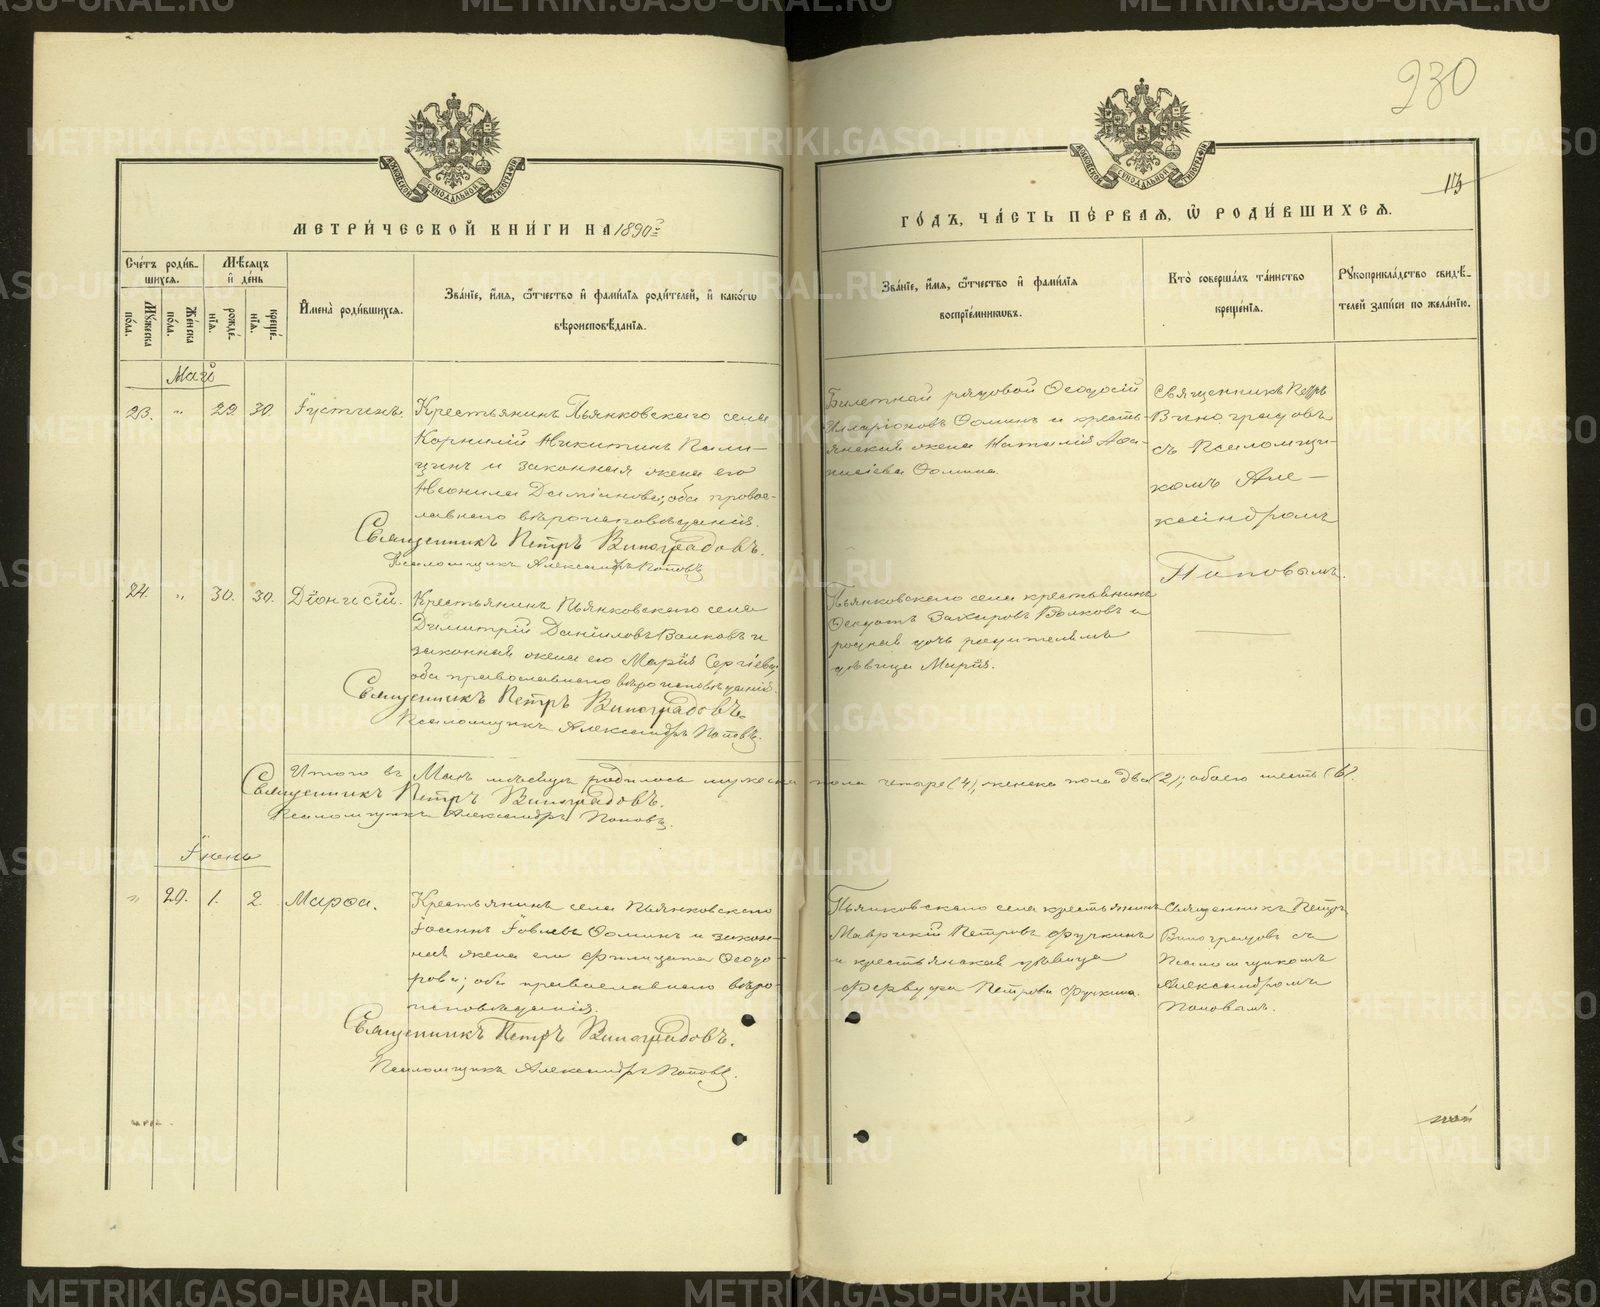 230
13
МЕТРИ́ЧЕСКОЙ КНИ́ГИ НА 1890 г.
ГО́ДЪ, ЧА́СТЬ ПЕ́РВАЯ, Ѡ РОДИ́ВШИХСЯ.
Сче́тъ роди́вшихся.
Мѣ́сяцъ и҆ де́нь
Му́жеска по́ла.
Же́нска по́ла.
рожде́нїя.
креще́нїя.
И҆мена̀ роди́вшихся.
Зва́нїе, и҆́мя, ѻ҆́тчество и҆ фами́лїя роди́телей, и҆ како́гѡ
вѣроисповѣ́данїя.
Зва́нїе, и҆́мя, ѻ҆́тчество и҆ фами́лїя
воспрїе́мникѡвъ.
Кто̀ соверша́лъ та́инство
креще́нїя.
Рꙋкоприкла́дство свидѣ́-
телей за́писи по жела́нїю.
Май
23. „ 29. 30. Іустинъ.
Крестьянинъ Пьянковскаго села
Корнилій Никитинъ
и законная жена его
Неонила Даміанова; оба право-
славнаго вѣроисповѣданія.
Священникъ Петръ Виноградовъ.
Псаломщикъ Александръ Поповъ
Билетный рядовой Ѳеодосій
Илларіоновъ Ѳоминъ и кресть-
янская жена Наталія Аѳа-
насіева Ѳомина.
Священникъ Петръ
Виноградовъ
съ Псаломщи-
комъ Але-
ксандромъ
Поповымъ.
24. „ 30. 30. Діонисій.
Крестьянинъ Пьянковскаго села
Димитрій Даніиловъ Волковъ и
законная жена его Марія Сергіева,
оба православнаго вѣроисповѣданія.
Священникъ Петръ Виноградовъ.
Псаломщикъ Александръ Поповъ.
Пьянковскаго села крестьянинъ
Ѳеодотъ Захаровъ Волковъ и
родная дочь родителямъ
дѣвица Марія.
Итого въ Маѣ мѣсяцѣ родилось мужеска пола четыре (4), женска пола два (2); обоего шесть (6).
Священникъ Петръ Виноградовъ.
Псаломщикъ Александръ Поповъ.
Іюнь
„ 20. 1. 2 Марѳа.
Крестьянинъ села Пьянковскаго
Іоаннъ Іовлевъ Ѳоминъ и закон-
ная жена его Филицата Ѳеодо-
рова; оба православнаго вѣро-
исповѣданія.
Священникъ Петръ Виноградовъ.
Псаломщикъ Александръ Поповъ.
Пьянковскаго села крестьянинъ
Маврикій Петровъ Фучкинъ
и крестьянская дѣвица
Петрова Фучкина.
Священникъ Петръ
Виноградовъ съ
Псаломщикомъ
Александромъ
Поповымъ.
METRIKI.GASO-URAL.RU